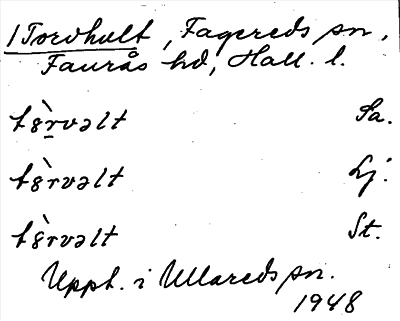 1 Torvhult, Fagereds sn,
Faurås hd, Hall. l.
tɞ̀rvəlt Sa.
tɞ̀rvəlt Lj.
tɞ̀rvəlt St.
Uppt. i Ullareds sn.
1948